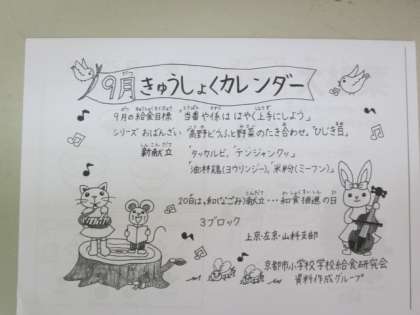 9月 きゅうしょくカレンダー
9月の給食目標 「当番や係は はやく上手にしよう」
シリーズ おばんざい 「高野どうふと野菜のたき合わせ」「ひじき豆」
新献立 「タッカルビ」「テンジャンクッ」
「油淋鶏(ヨウリンジー)」「米粉(ミーフン)」
20日は、和(なごみ)献立…和食推進の日
3ブロック
上京・左京・山科支部
京都市小学校学校給食研究会
資料作成グループ